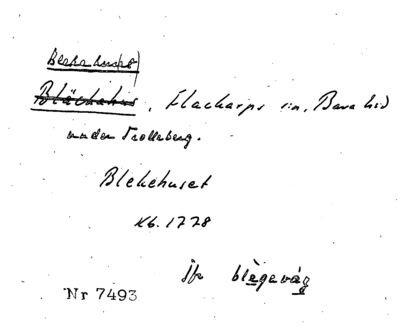 Blekehuset
Bläckahus, Flackarps sn, Bara hd
under Trolleberg.
Blekehuset
Kb. 1728
jfr blègeväg
Nr 7493